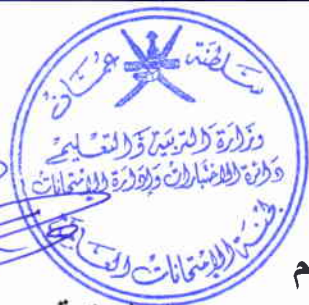 سلطنة عُمان
وزارة التربية والتعليم
دائرة الاختبارات وإدارة الامتحانات
لجنة الامتحانات العامة
م